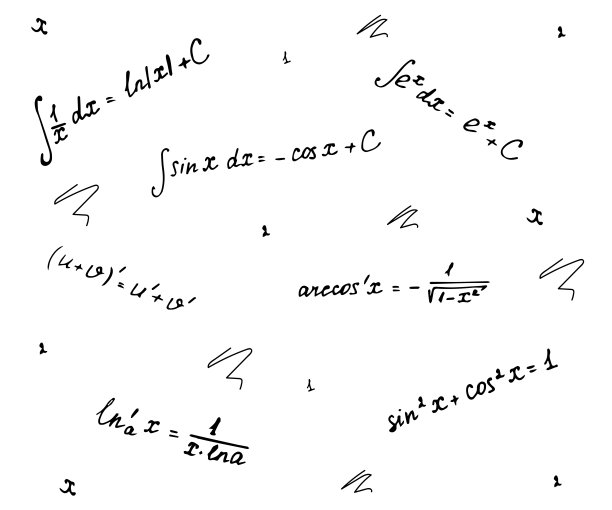 x
2
1
∫ 1/x dx = ln|x| + C
∫ e^x dx = e^x + C
∫ sin x dx = - cos x + C
x
2
(u+v)' = u' + v'
arccos'x = - 1/√(1-x²)
2
1
sin² x + cos² x = 1
ln'ₐ x = 1/(x·lna)
x
2